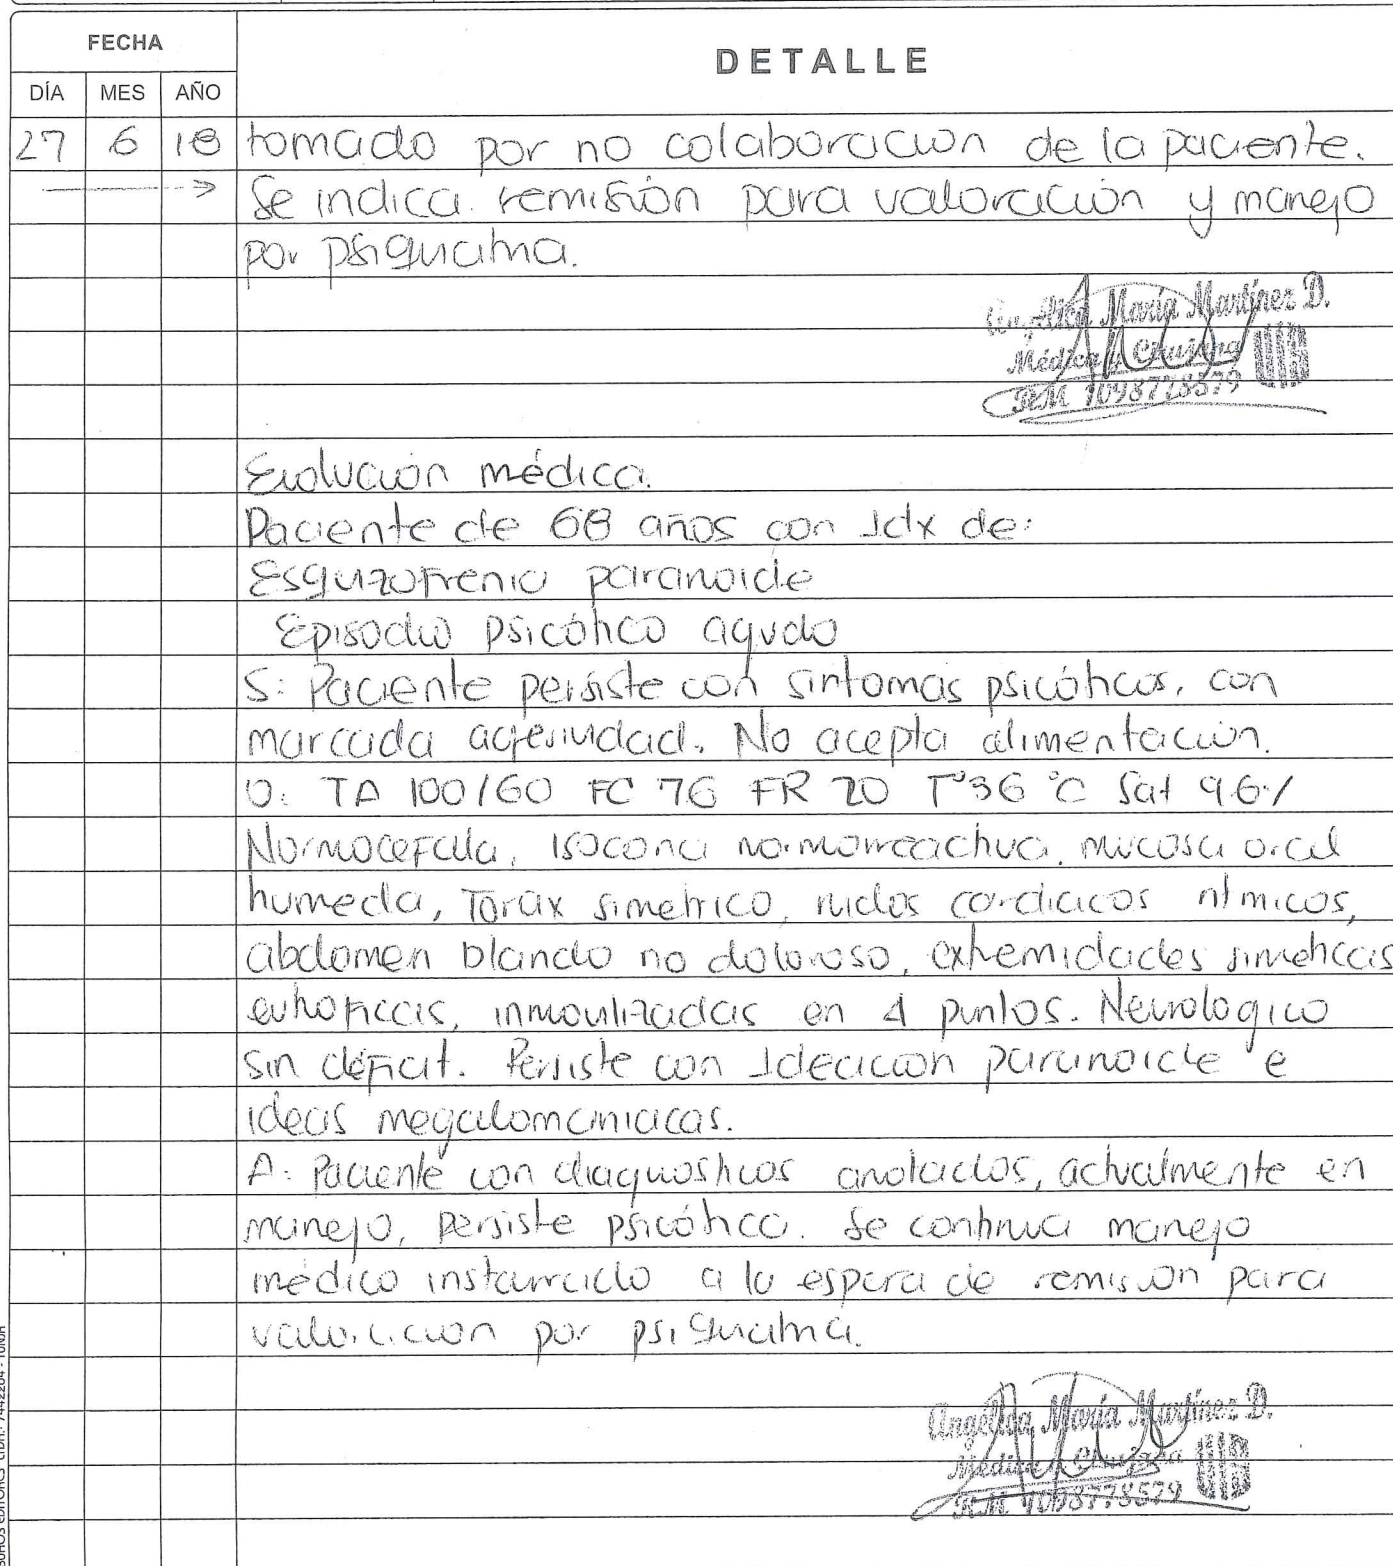 FECHA
DETALLE
DÍA MES AÑO
27 6 18 tomado por no colaboración de la paciente.
Se indica remisión para valoración y manejo
por psiquiatria.
Angélica María Martínez D.
Médica Cirujana
R.M. 1098778579
Evolución médica.
Paciente de 68 años con Idx de:
Esquizofrenia paranoide
Episodio psicótico agudo
S: Paciente persiste con sintomas psicóticos, con
marcada agresividad. No acepta alimentación.
O: TA 100/60 FC 76 FR 20 T° 36 °C Sat 96%
Normocefala, isocoria normorreactiva, mucosa oral
humeda, Torax simetrico, ruidos cardiacos ritmicos,
abdomen blando no doloroso, extremidades simetricas
eutroficas, inmovilizadas en 4 puntos. Neurologico
sin déficit. Persiste con Ideacion paranoide e
ideas megalomaniacas.
A: Paciente con diagnosticos anotados, actualmente en
manejo, persiste psicótica. Se continua manejo
médico instaurado a la espera de remision para
valoracion por psiquiatria.
Angélica María Martínez D.
Médica Cirujana
R.M. 1098778579
EDITORES LTDA.: 7442264 - TUNJA